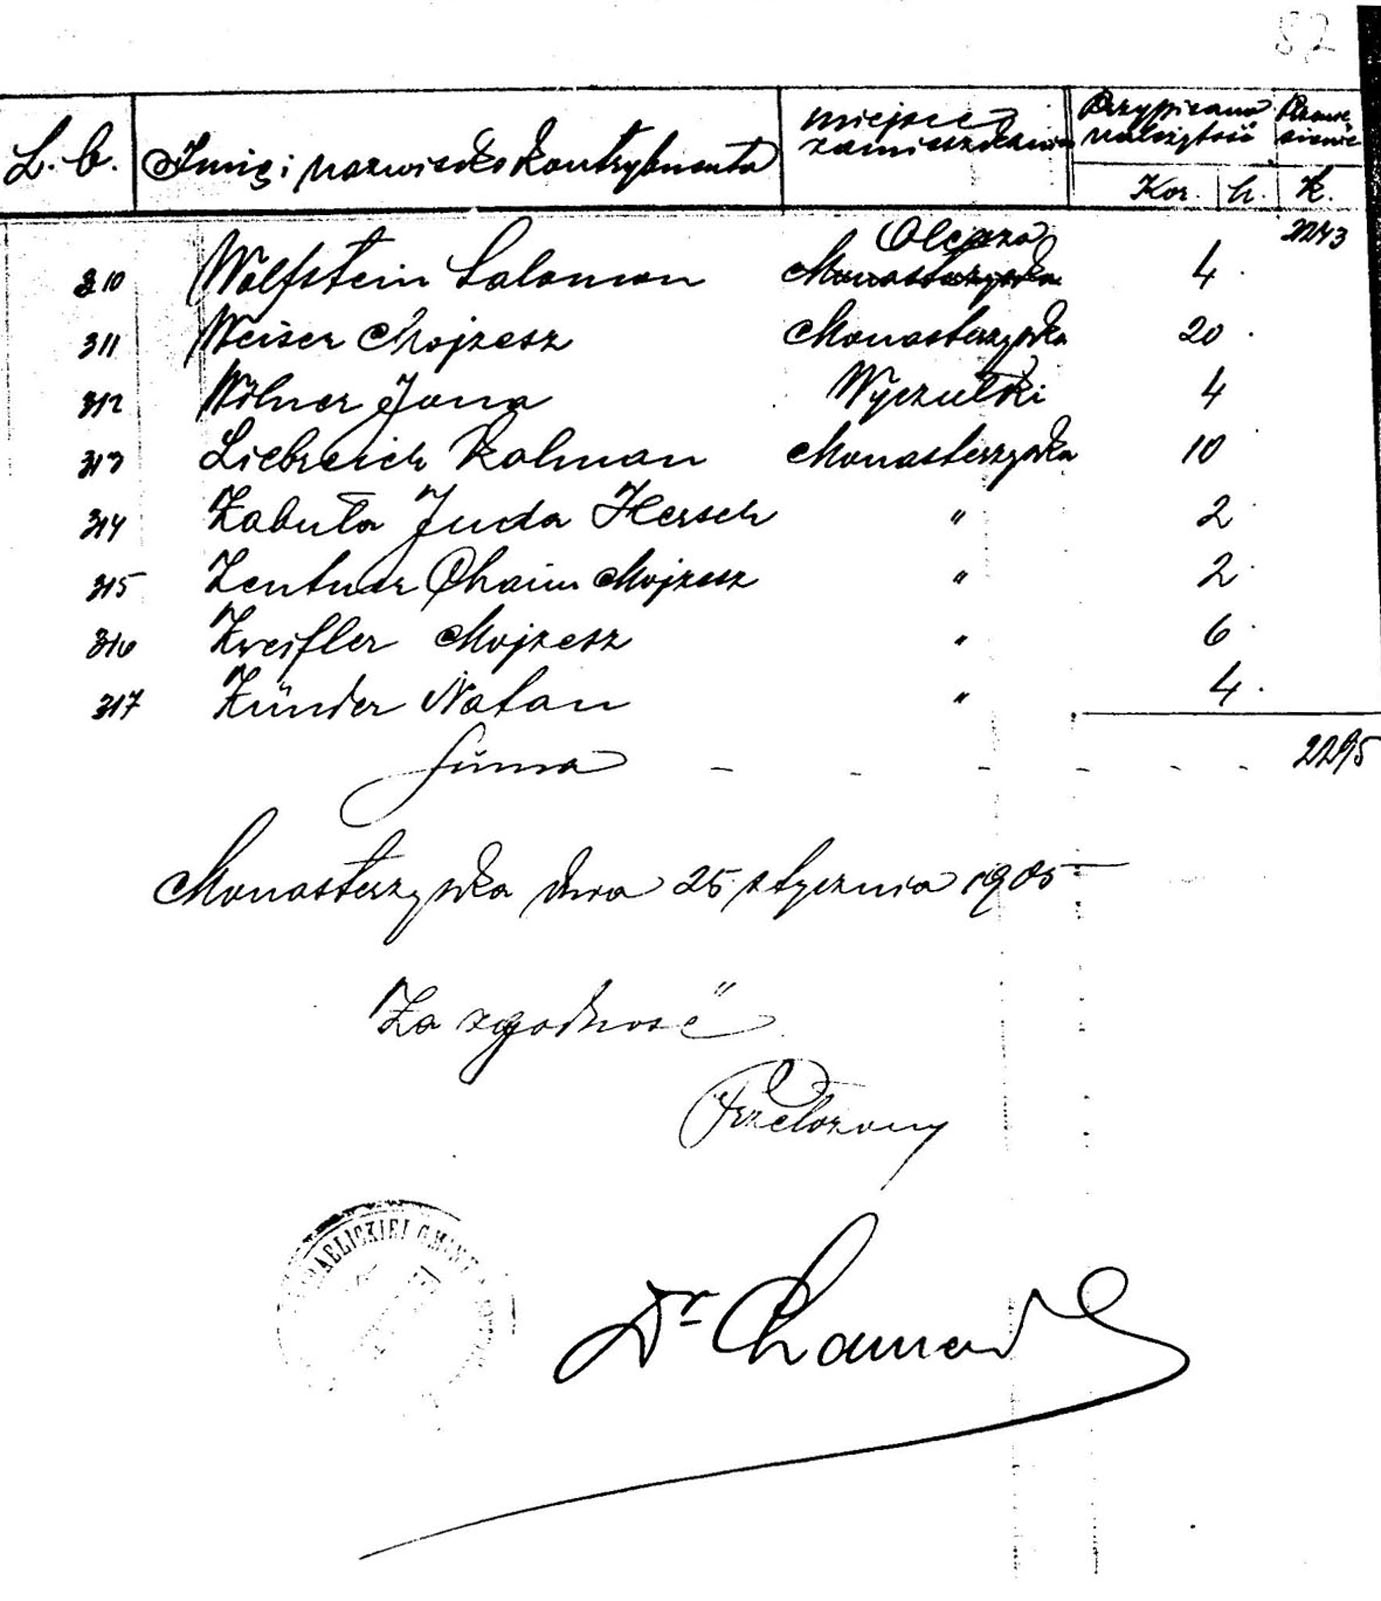 82
L. b. Imię i nazwisko kontrybuenta miejsce zamieszkania Przypisana należytość Przeniesienie
Kor. h. K.
2243
Olesza
310 Wolfstein Salomon Monasterzyska 4
311 Weiser Mojzesz Monasterzyska 20
312 Wilner Jona Wyczułki 4
313 Liebreich Kalman Monasterzyska 10
314 Zabuła Juda Hersch " 2
315 Zentner Chaim Mojzesz " 2
316 Zweifler Mojzesz " 6
317 Zünder Natan " 4
Suma - - - - - - 2295
Monasterzyska dnia 25 stycznia 1905
Za zgodność
Przełożony
RAELICKIEJ GMINY
Dr Chamed